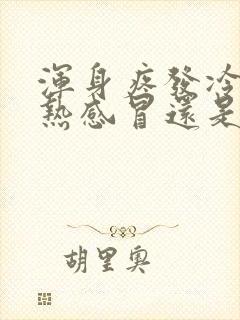 渾身疼發冷
熱感冒還是
胡里奧